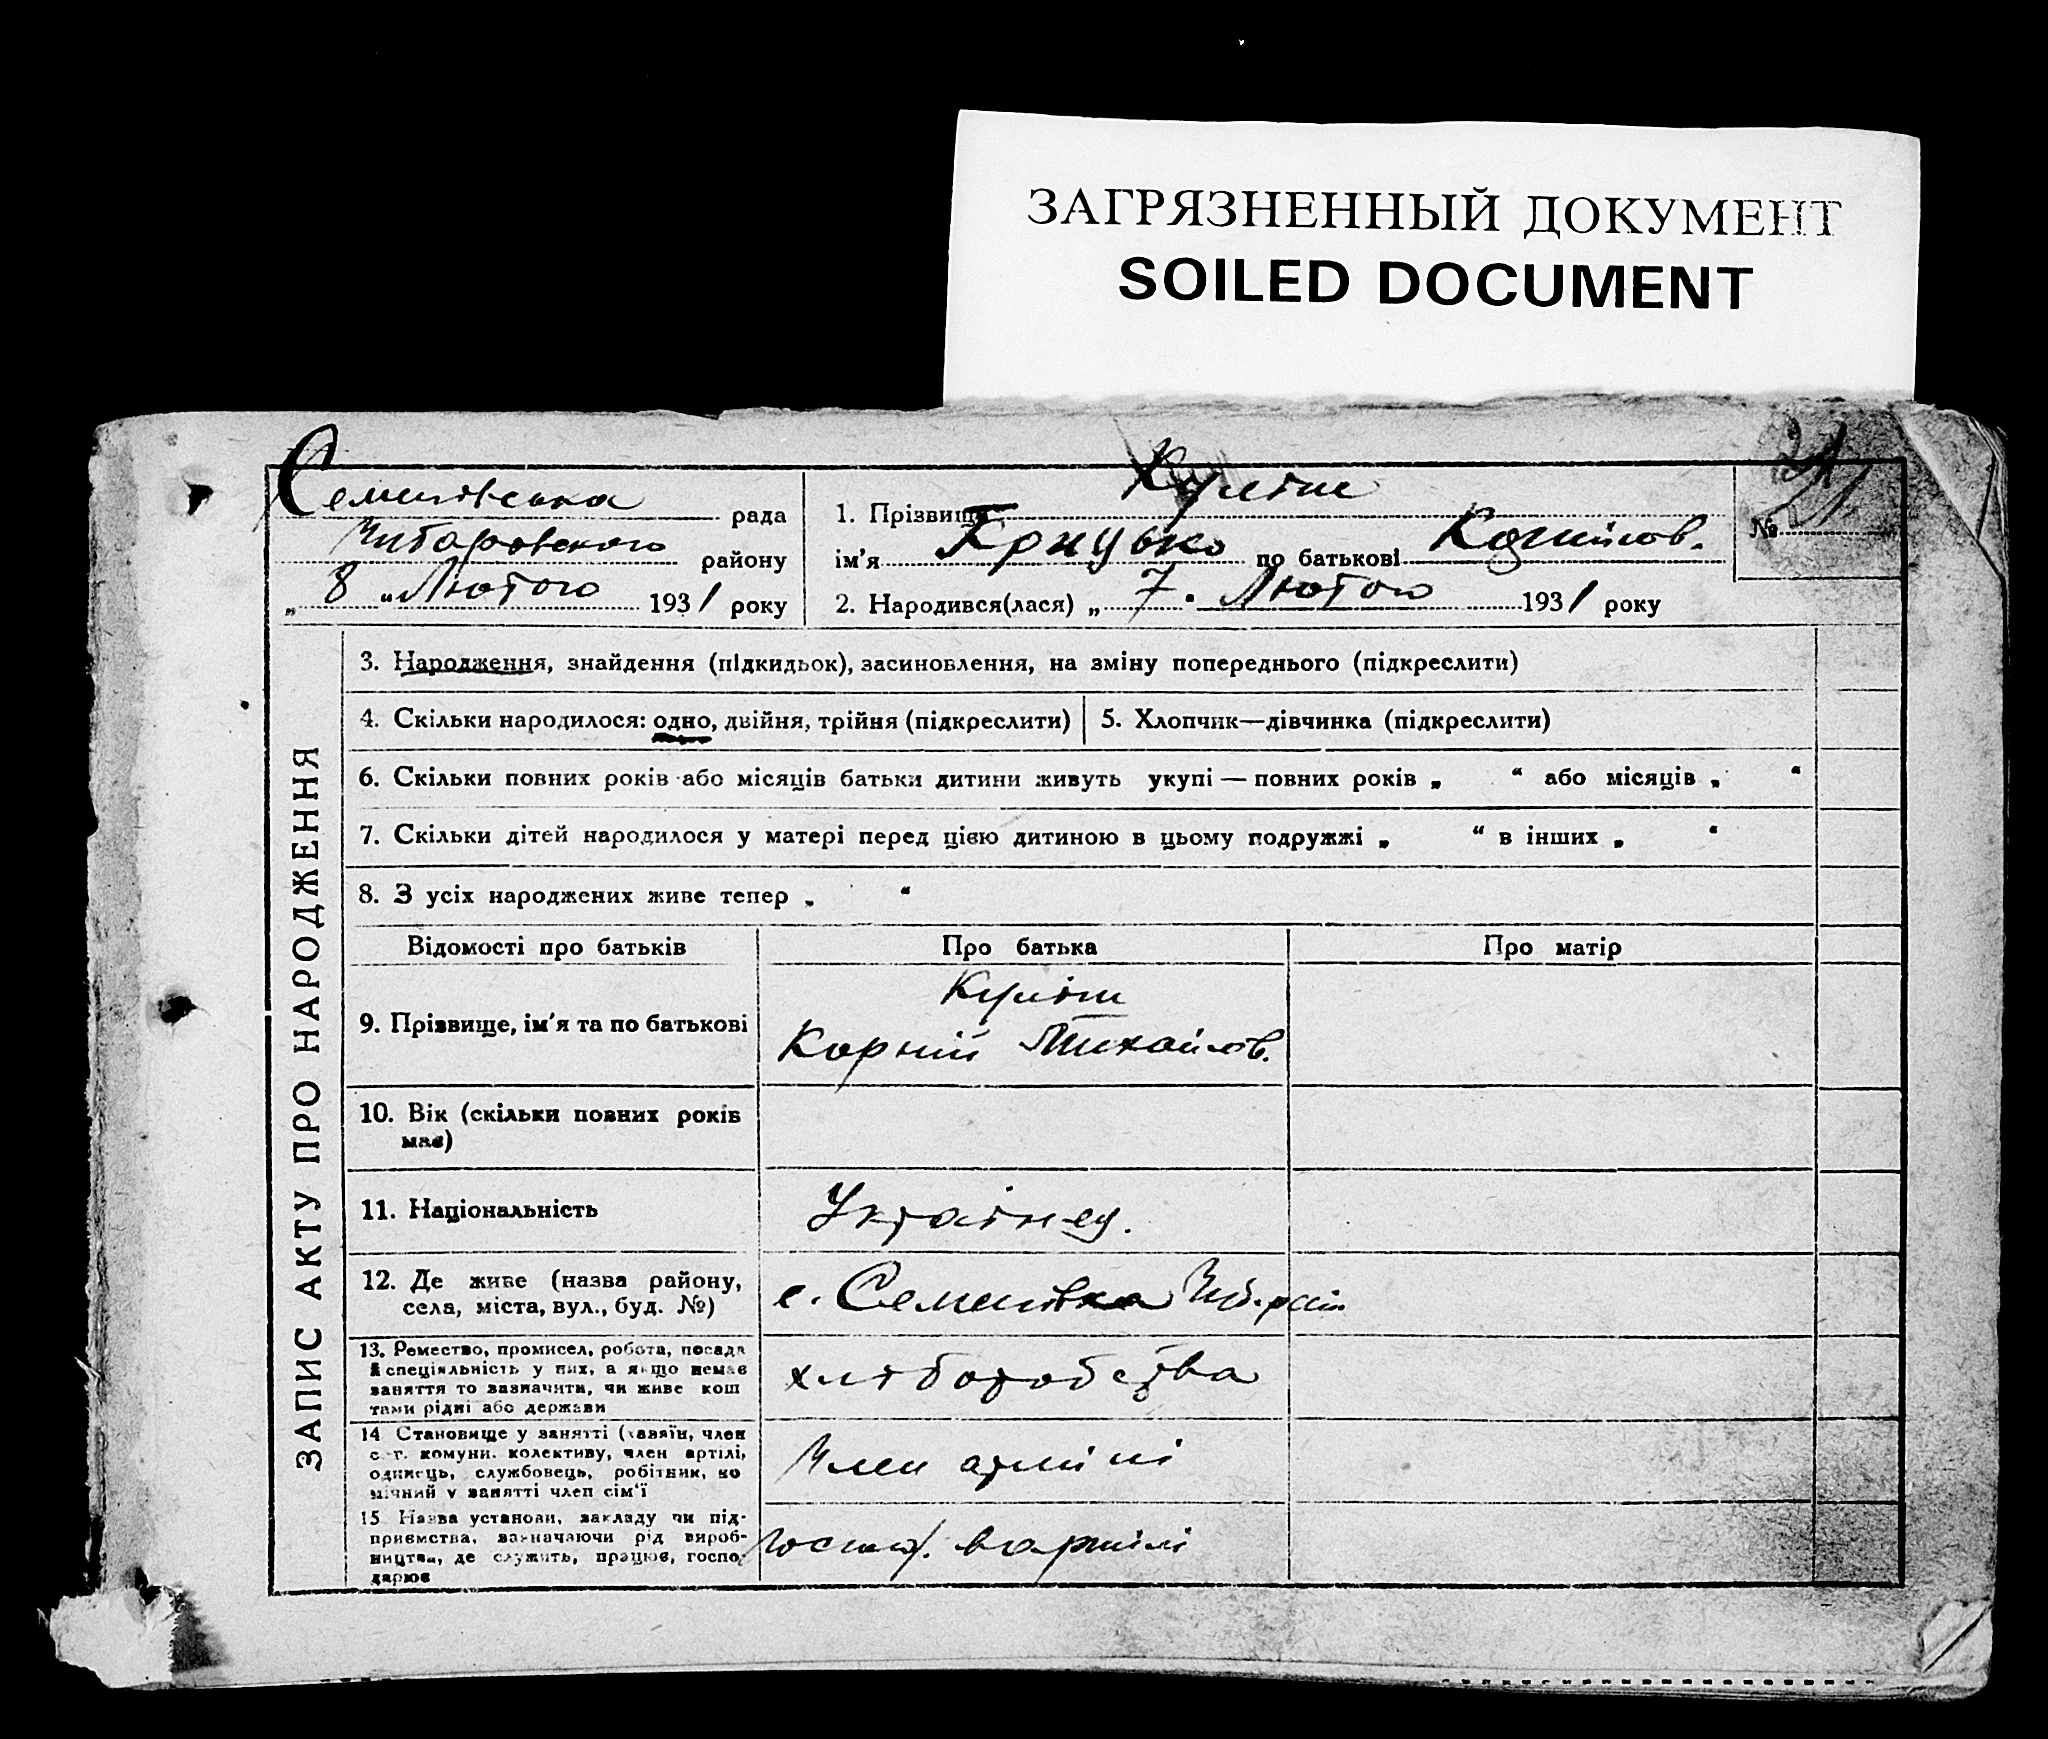 ЗАГРЯЗНЕННЫЙ ДОКУМЕНТ
SOILED DOCUMENT
Семенівська рада
району
„ 8 “ Лютого 1931 року
1. Прізвище Куліш
ім'я Грицько по батькові
2. Народився(лася) „ 7 . Лютого 1931 року
№ 21
ЗАПИС АКТУ ПРО НАРОДЖЕННЯ
3. Народження, знайдення (підкидьок), засиновлення, на зміну попереднього (підкреслити)
4. Скільки народилося: одно, двійня, трійня (підкреслити)
5. Хлопчик—дівчинка (підкреслити)
6. Скільки повних років або місяців батьки дитини живуть укупі — повних років „ “ або місяців „ “
7. Скільки дітей народилося у матері перед цією дитиною в цьому подружжі „ “ в інших „ “
8. З усіх народжених живе тепер „ “
Відомості про батьків
Про батька
Про матір
9. Прізвище, ім'я та по батькові
Куліш
Корній Михайлов.
10. Вік (скільки повних років
має)
11. Національність
Українец.
12. Де живе (назва району,
села, міста, вул., буд. №)
с. Семенівка
13. Ремество, промисел, робота, посада
й спеціяльність у них, а якщо немає
заняття то зазначити, чи живе кош
тами рідні або держави
хліборобства
14 Становище у занятті (хазяїн, член
с.-г. комуни, колективу, член артілі,
одинець, службовець, робітник, по
мічний у занятті член сім'ї
Член артілі
15. Назва установи, закладу чи під-
приємства, зазначаючи рід вироб-
ництва, де служить, працює, госпо-
дарює
вартілі